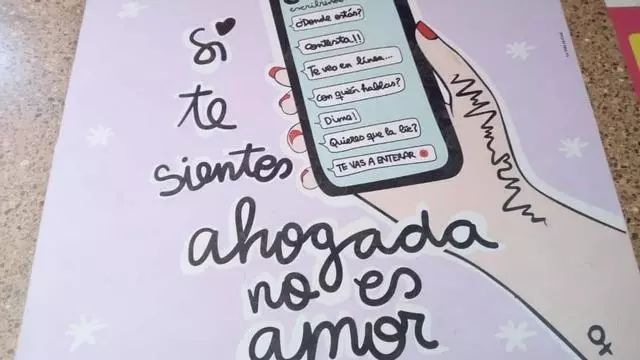 escribiendo
¿Donde estás?
contesta!!
Te veo en linea...
con quién hablas?
Dime!
Quieres que la lie?
TE VAS A ENTERAR
Si
te
sientes
ahogada
no es
amor